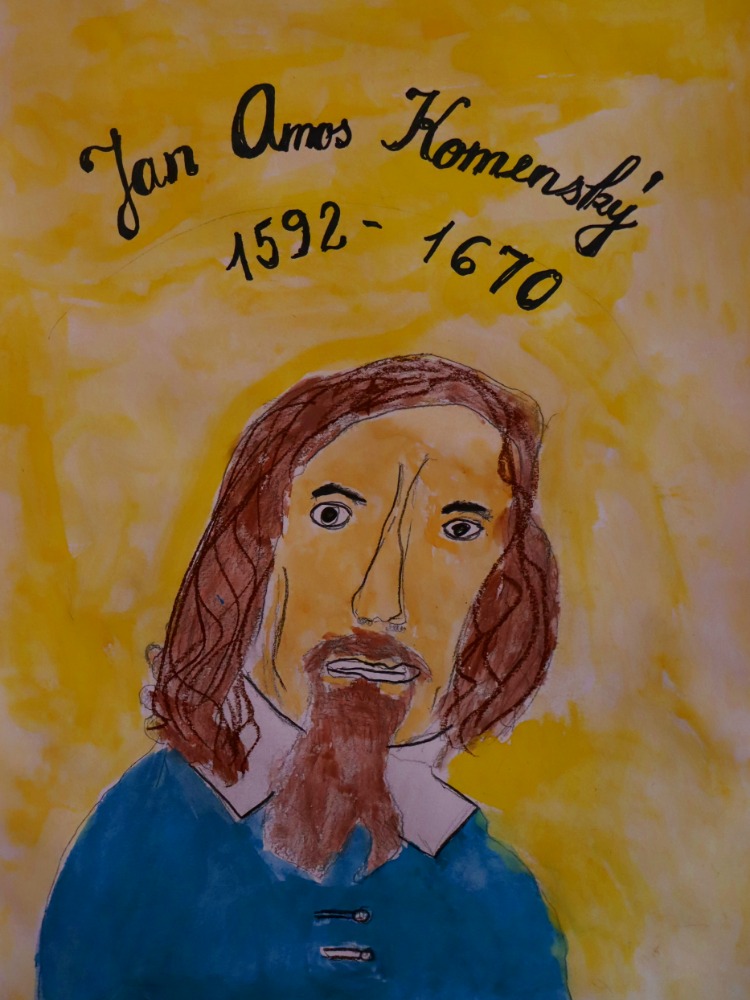 Jan Amos Komenský
1592 - 1670